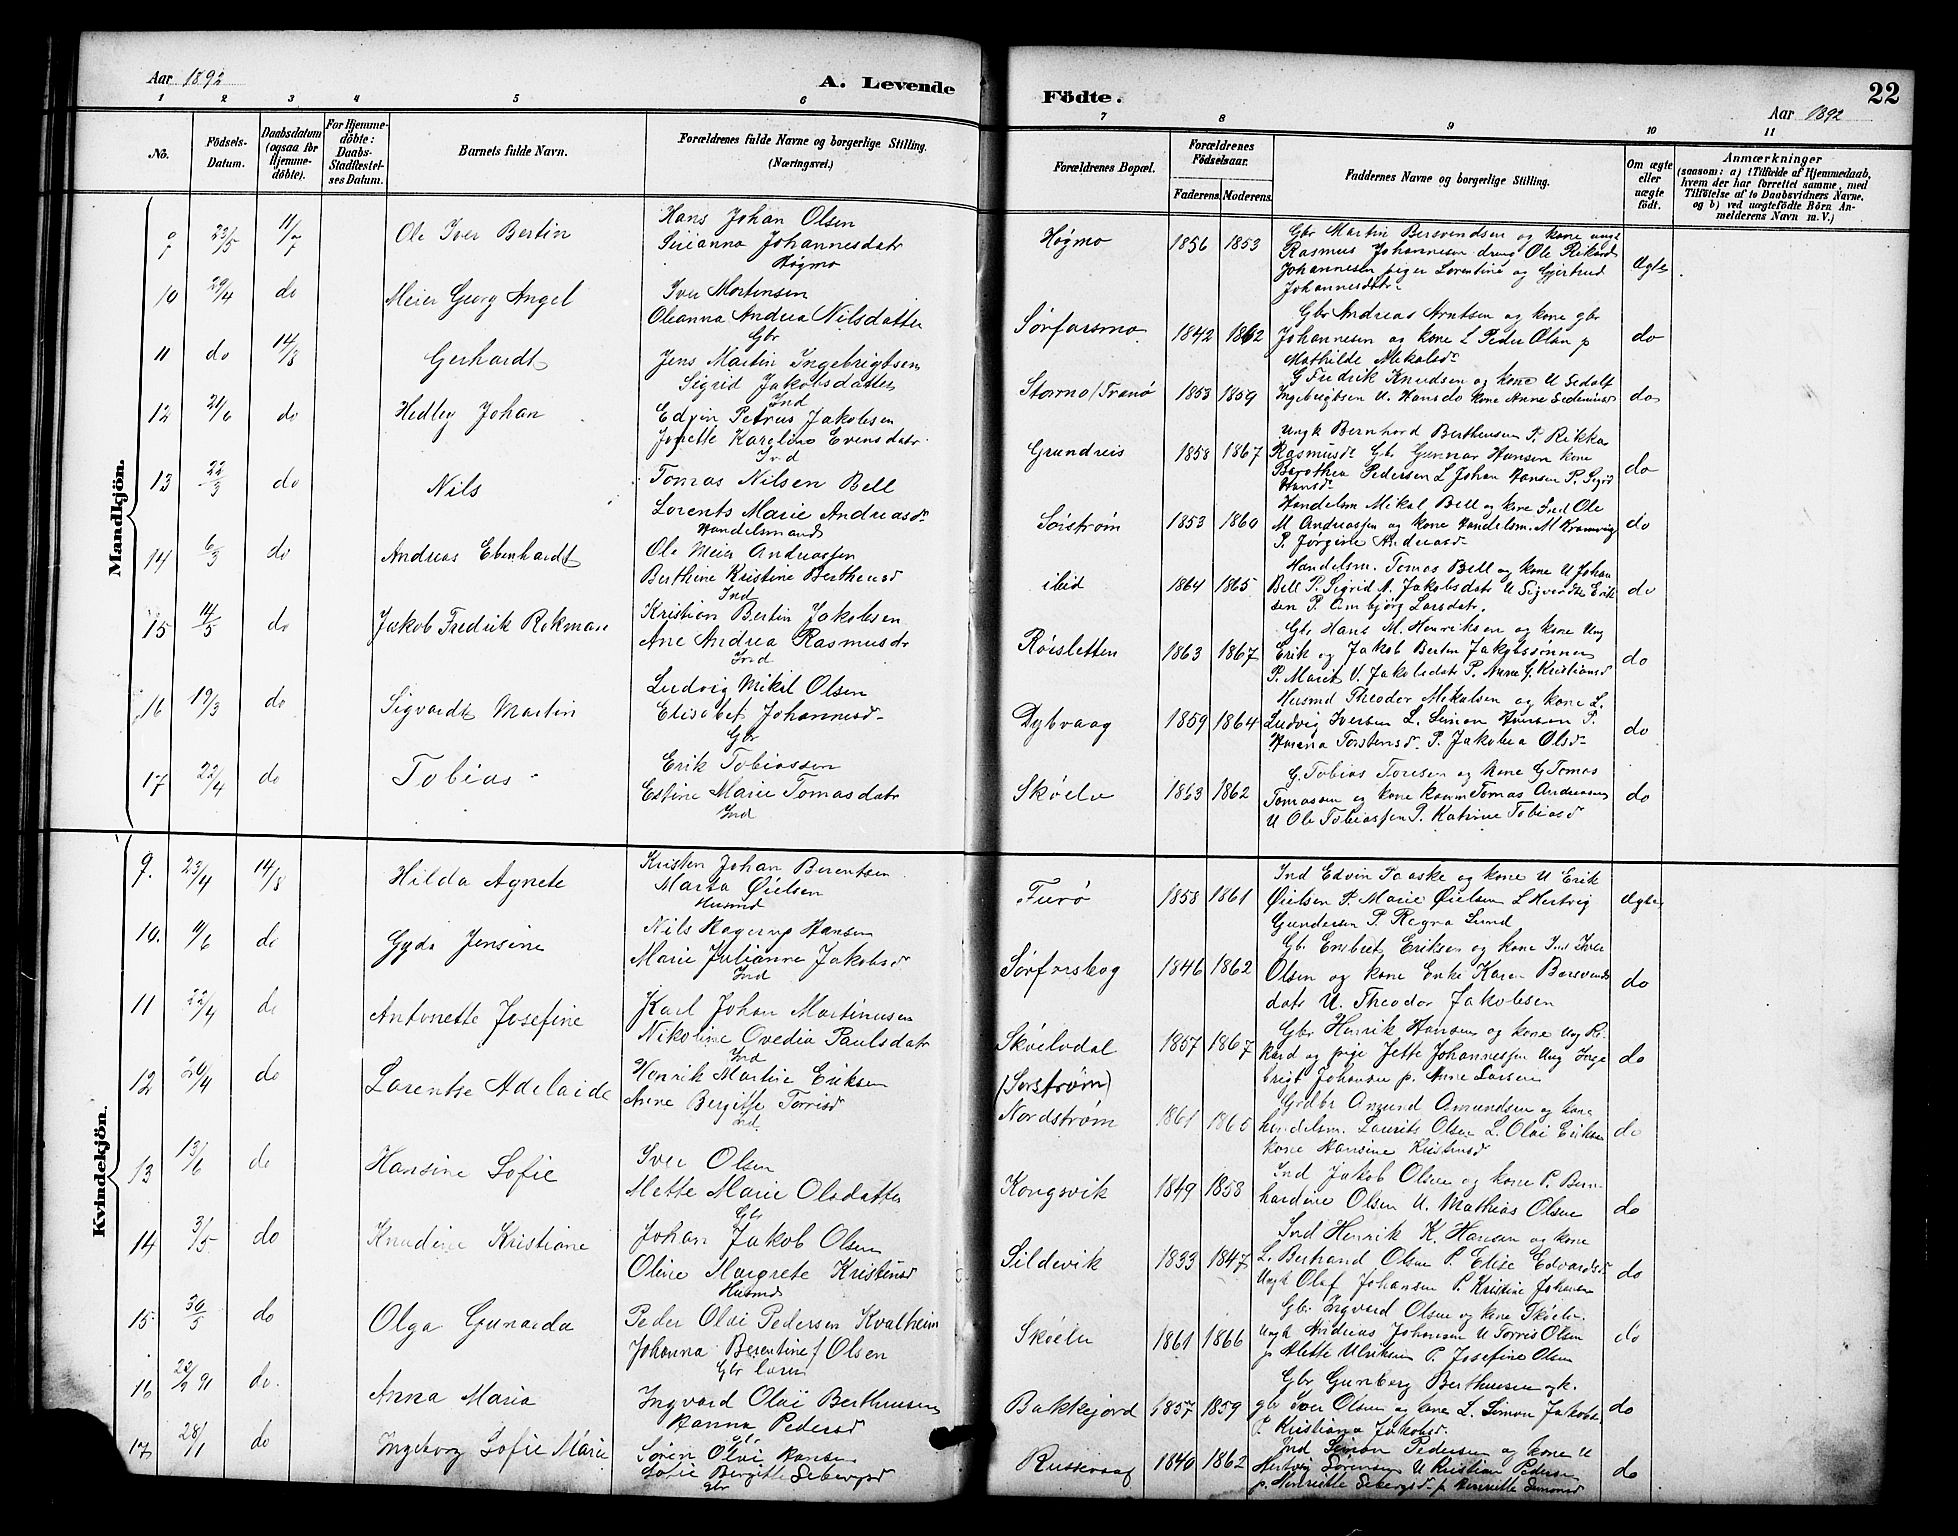 Aar 1892
A. Levende
Födte.
Aar 1892
22
1 2 3 4 5 6 7 8 9 10 11
No.
Födsels-
Datum.
Daabsdatum
(ogsaa for
Hjemme-
döbte).
For Hjemme-
döbte:
Daabs-
Stadfæstel-
ses Datum.
Barnets fulde Navn.
Forældrenes fulde Navne og borgerlige Stilling.
(Næringsvei.)
Forældrenes Bopæl.
Forældrenes
Födselsaar.
Faderens. Moderens.
Faddernes Navne og borgerlige Stilling.
Om ægte
eller
uægte
födt.
Anmærkninger
(saasom: a) i Tilfælde af Hjemmedaab,
hvem der har forrettet samme, med
Tilföielse af to Daabsvidners Navne,
og b) ved uægtefödte Börn An-
melderens Navn m. V.)
Mandkjön.
9 23/5 Ole Iver Bertin
Hans Johan Olsen
Johannesdatr
Høgmo
Høgmo 1856 1853
Gbr Martin Bersvendsen og kone ungk
Rasmus Johannesen dreng Ole Rikard
Johannesen piger Lorentine og Gjertrud
Johannesdatr
Ægte
10 29/4 do Meier Georg Angel
Iver Mortensen
Oleanna Andrea Nilsdatter
Gbr
Sørfarsmo 1842 1862
Gbr Andreas Arntsen og kone gbr
Johannesen og kone L Peder Olsen p
Mathilde Mekalsdr
do
11 do 14/8 Gerhardt
Jens Martin Ingebrigtsen
Sigrid Jakobsdatter
Ind
1853 1859
G Fredrik Knudsen og kone U Sedolf
Ingebrigtsen U. Hans do kone Anne
do
12 21/6 do Hedley Johan
Petrus Jakobsen
Jonette Karoline Evensdatr
Ind
Grundreis 1858 1867
Ungk Bernhard Berthensen P. Rikka
Rasmusdr Gbr Gunnar Hansen kone
Dorothea Pedersen L Johan Hansen P. Sigrid
Hansdr
do
13 22/3 do Nils
Tomas Nilsen Bell
Lorents Marie Andreasdr
Handelsmand
Sørstrøm 1853 1860
Handelsm Mikal Bell og kone Ind Ole
M Andreassen og kone Handelsm. M
P. Jørgine Andreasdr
do
14 6/3 do Andreas Ebenhardt
Ole Meier Andreassen
Berthine Kristine Berthensd
Ind
ibid 1864 1865
Handelsm. Tomas Bell og kone U Johan
Bell P. Sigrid A. Jakobsdatr U Sigvardt Erik
sen P. Larsdatr.
do
15 do Jakob Fredrik Rokman
Kristian Bertin Jakobsen
Ane Andrea Rasmusdr
Ind
Røisletten 1863 1867
Gbr Hans M. Henriksen og kone Ung
Erik og Jakob Bertin Jakobsønner
P. Marit V. Jakobsdatr P. Anne G. Kristiansd
do
16 19/3 do Sigvardt Martin
Ludvig Mikal Olsen
Elisabet Johannesd
Gbr
Dybvaag 1859 1864
Husmd Theodor Mekalsen og kone L.
Ludvig Iversen L. Simon Hansen P.
Torstensd. P. Jakobea Olsdr
do
17 22/4 do Tobias
Erik Tobiassen
Marie Tomasdatr
Ind
Skøelv 1863 1862
G. Tobias Toresen og kone G Tomas
Tomassen og kone Tomas Andreasen
U Ole Tobiassen P. Katrine Tobiasd
do
Kvindekjön.
9. 23/4 14/8 Hilda Agnete
Kristen Johan Berentsen
Marta Øielsen
Husmd
Furø 1858 1861
Ind Edvin Paaske og kone U Erik
Øielsen P. Marie Øielsen L Hertvig
Gundersen P. Regna Lund
Ægte
10. 11/6 do Gyda Jensine
Nils Hagerup Hansen
Marie Julianne Jakobsd
Ind
1846 1862
Gb. Eriksen og kone Ind Iver
Olsen og kone Enke Karen Bersvends
datr U. Theodor Jakobsen
do
11 22/4 do Antonette Josefine
Karl Johan Martinusen
Nikoline Ovedia Paulsdatr
Ind
Skøelvdal 1857 1867
Gbr Henrik Hansen og kone Ung Ri
kard og pige Jette Johannessen Ung Inge
brigt Johansen p. Anne Larsen
do
12 20/4 do Lorentse Adelaide
Henrik Martin Eriksen
Anne Bergitte Torrisd
Ind.
(Sørstrøm)
Nordstrøm 1861 1865
Amund Amundsen og kone
handelsm. Laurits Olsen L. Olai Eriksen
kone Hansine Kristensd
do
13 13/6 do Hansine Sofie
Iver Olsen
Mette Marie Olsdatter
Gbr
Kongsvik 1849 1858
Ind Jakob Olsen og kone P. Bern-
hardine Olsen U. Mathias Olsen
do
14 3/5 do Knudine Kristiane
Johan Jakob Olsen
Oline Margrete Kristensd
Husmd
Sildevik 1833 1847
Ind Henrik K. Hansen og kone
L. Bertrand Olsen P. Elise Edvardsd
Ungk Olaf Johansen P. Kristine Johansen
do
15 30/5 do Olga Gunarda
Peder Olai Pedersen Kvalheim
Johanna Berentine f Olsen
Gbr
Skøelv 1861 1866
Gbr. Ingvard Olsen og kone Skøelv
Ungk Andreas Johansen U Torris Olsen
p Alette Ulriksen P. Josefine Olsen
do
16 91 do. Anna Maria
Ingvard Olai Berthensen
Hanna Pedersd
Gbr
Bakkejord 1857 1859
Gbr Gunberg Berthensen og k.
gbr Iver Olsen og kone L. Simon Jakobs
P. Kristiana Jakobsd.
do
17 28/1 do Ingeborg Sofie Marie
Søren Olai Hansen
Sofie Birgitte Sebergsd
Gbr
1840 1862
Ind Simon Pedersen og kone U
Hertvig Sørensen U Kristian Pedersen
p. Henriette Sebergsd p Henriette Simonsd
do